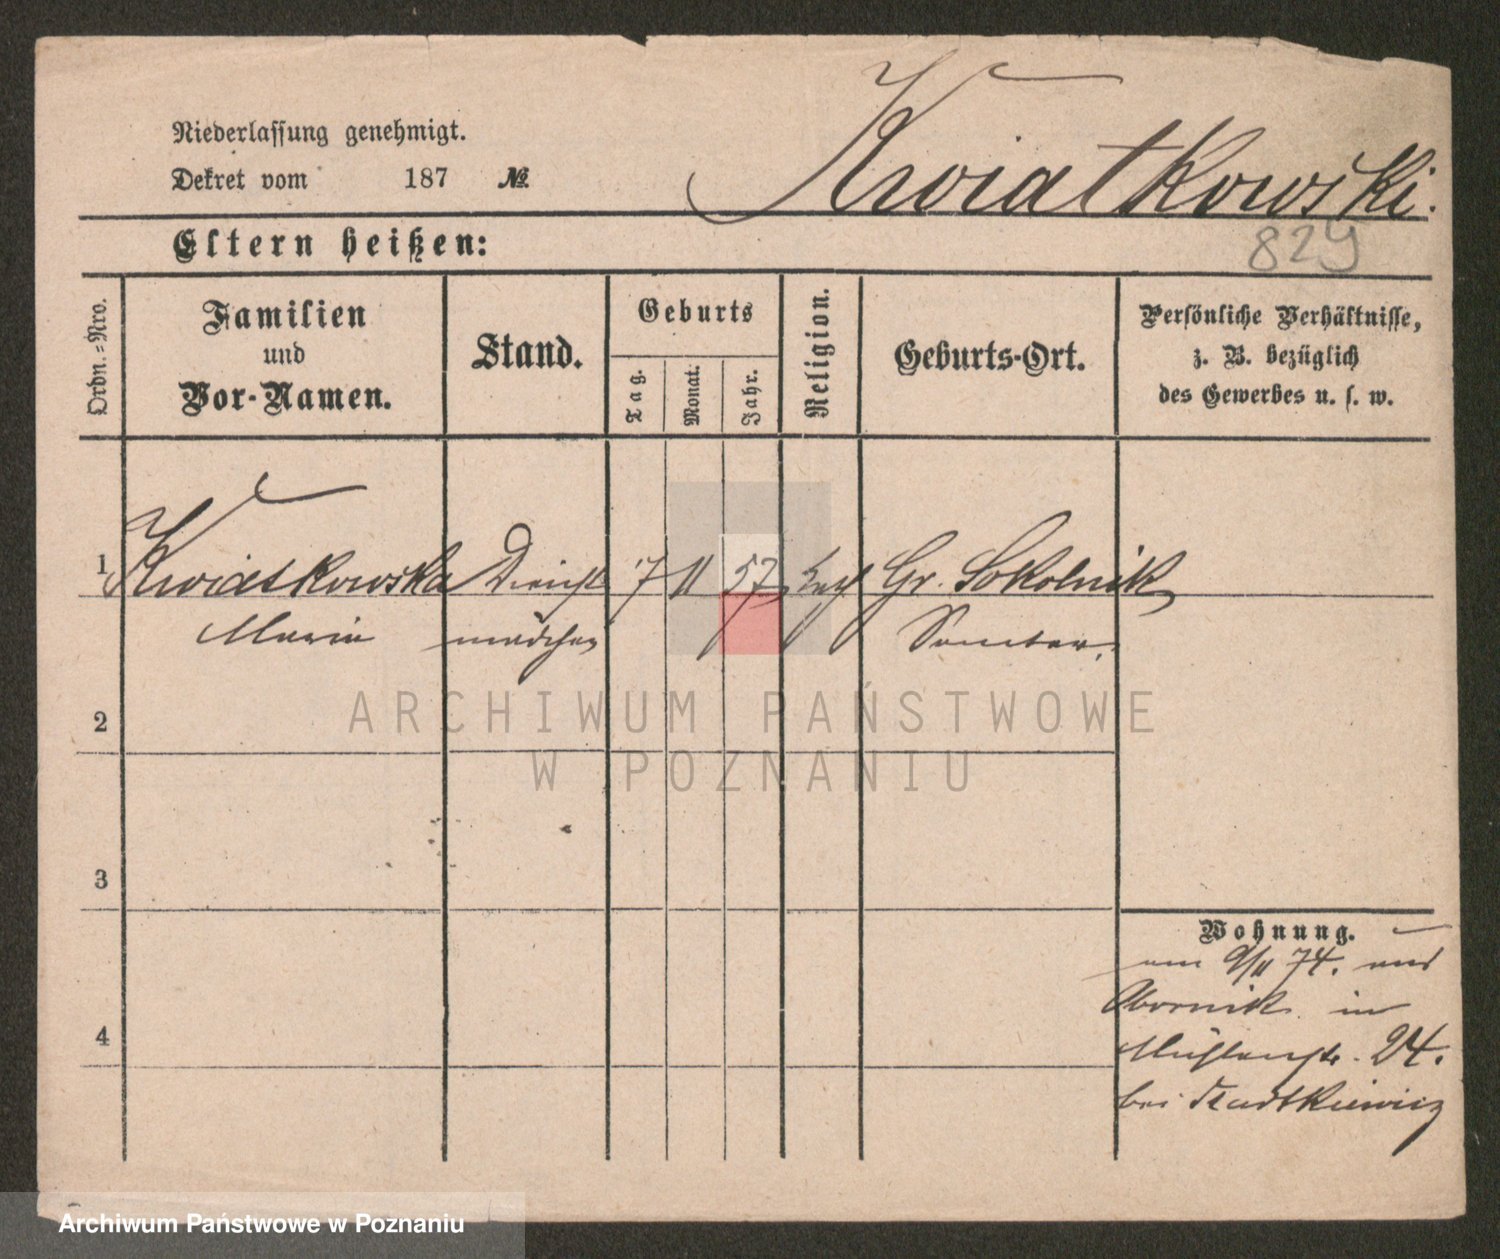 Kwiatkowski.
Niederlassung genehmigt.
Dekret vom 187 №
829
Eltern heißen:
Ordn.-Nro.
Familien
und
Vor-Namen.
Stand.
Geburts
Tag.
Monat.
Jahr.
Religion.
Geburts-Ort.
Persönliche Verhältnisse,
z. B. bezüglich
des Gewerbes u. s. w.
1 Kwiatkowska Dienst 7 11 57 kath Gr. Sokolnik
Maria mädchen Samter.
2
3
4
Wohnung.
am 9/11 74. aus
Obornik in
Mühlenstr. 24.
bei
ARCHIWUM PAŃSTWOWE
W POZNANIU
Archiwum Państwowe w Poznaniu